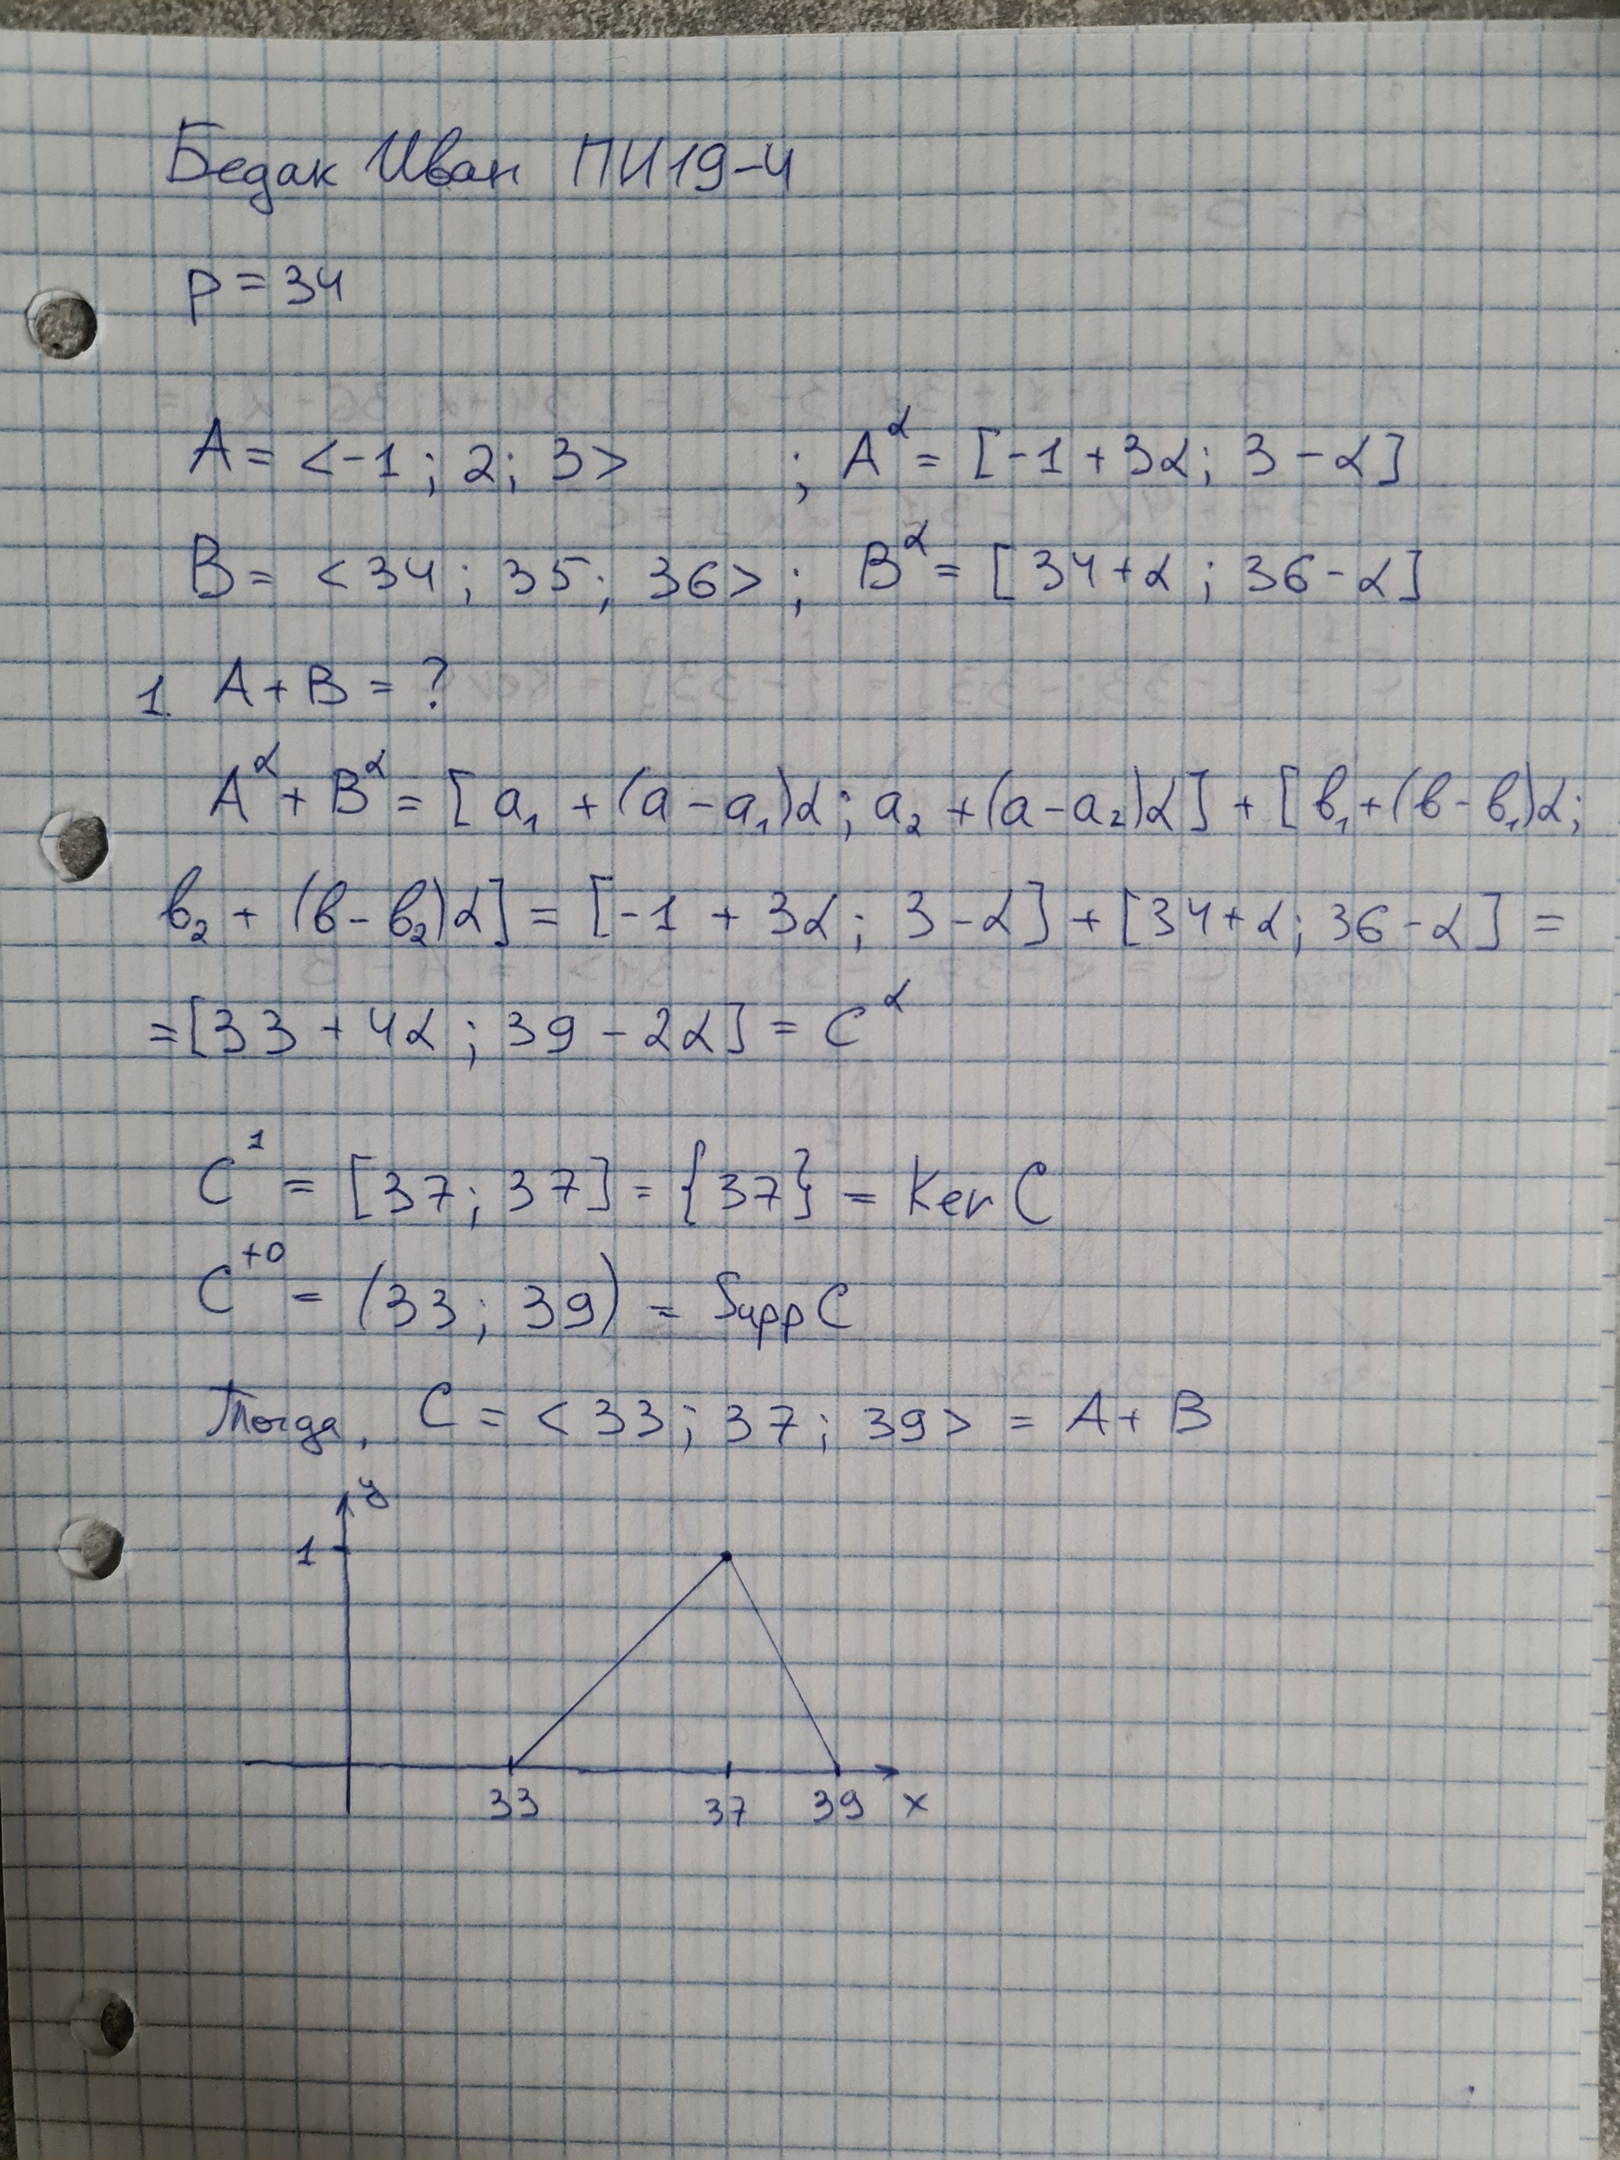 Бедак Иван ПИ19-4
p = 34
A = <-1; 2; 3> ; A^α = [-1 + 3α; 3 - α]
B = <34; 35; 36>; B^α = [34 + α; 36 - α]
1. A + B = ?
A^α + B^α = [a₁ + (a - a₁)α; a₂ + (a - a₂)α] + [в₁ + (в - в₁)α;
в₂ + (в - в₂)α] = [-1 + 3α; 3 - α] + [34 + α; 36 - α] =
= [33 + 4α; 39 - 2α] = C^α
C^1 = [37; 37] = {37} = Ker C
C^+0 = (33; 39) = Supp C
Тогда, C = <33; 37; 39> = A + B
y
1
33 37 39 x